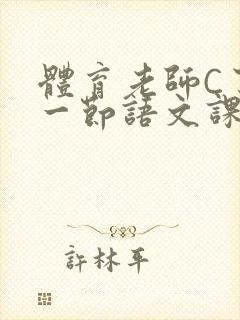 體育老師C
一節語文課
許林平